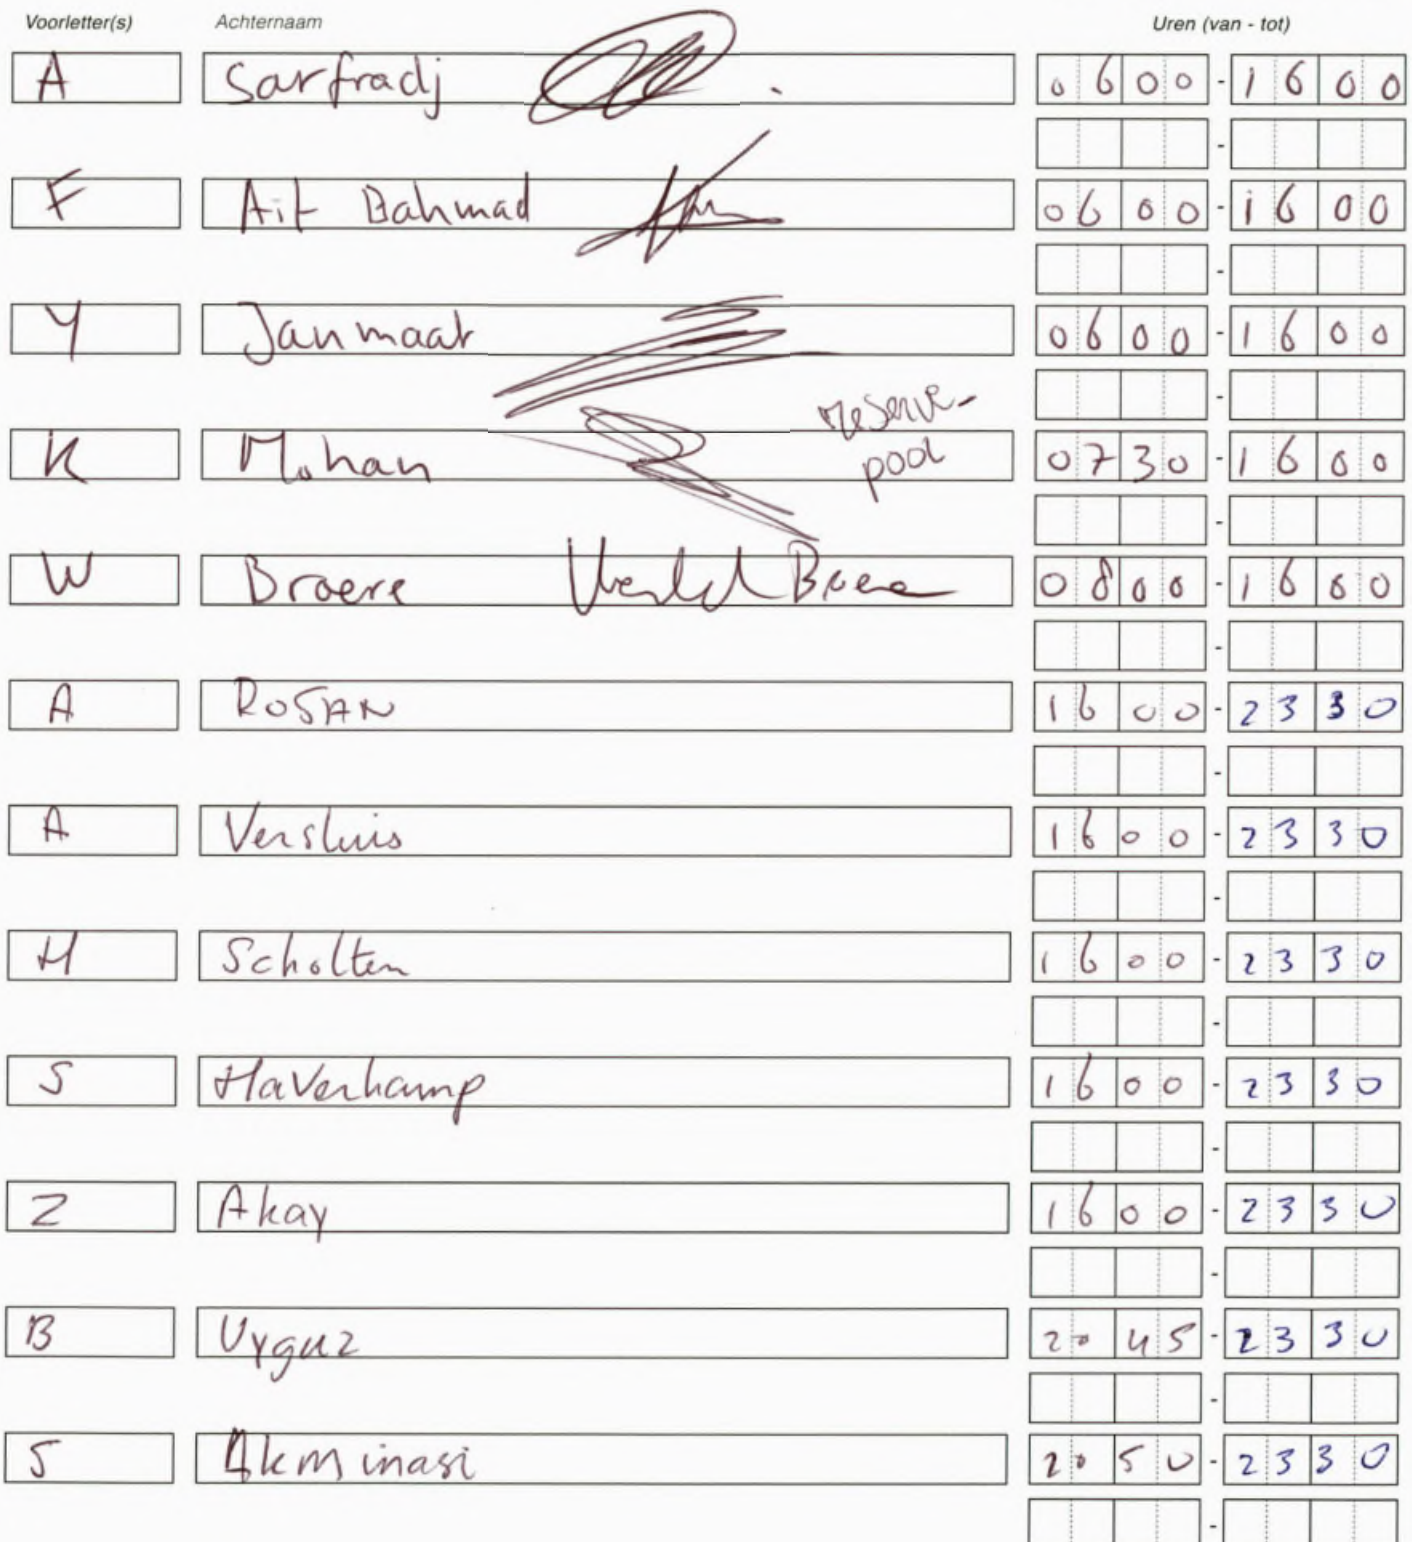 Voorletter(s) Achternaam Uren (van - tot)
A Sarfradj 0600 - 1600
-
F Ait Bahmad 0600 - 1600
-
Y Janmaat 0600 - 1600
-
reserve-
K Mohan pool 0730 - 1600
-
W Broere Broere 0800 - 1600
-
A ROSAN 1600 - 2330
-
A Versluis 1600 - 2330
-
H Scholten 1600 - 2330
-
S Haverhamp 1600 - 2330
-
Z Akay 1600 - 2330
-
B Uyguz 2045 - 2330
-
S Akminasi 2050 - 2330
-